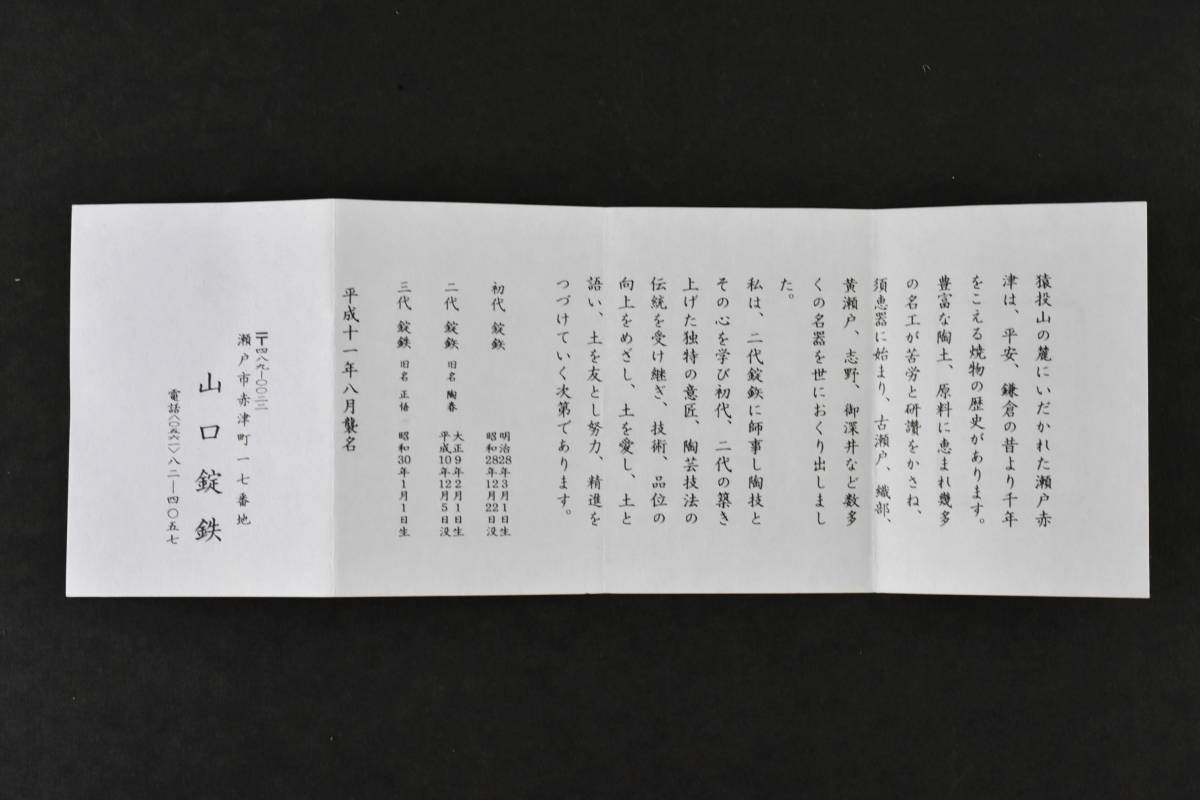 猿投山の麓にいだかれた瀬戸赤
津は、平安、鎌倉の昔より千年
をこえる焼物の歴史があります。
豊富な陶土、原料に恵まれ幾多
の名工が苦労と研讃をかさね、
須恵器に始まり、古瀬戸、織部、
黄瀬戸、志野、御深井など数多
くの名器を世におくり出しまし
た。
私は、二代錠鉄に師事し陶技と
その心を学び初代、二代の築き
上げた独特の意匠、陶芸技法の
伝統を受け継ぎ、技術、品位の
向上をめざし、土を愛し、土と
語い、土を友とし努力、精進を
つづけていく次第であります。
初代 錠鉄 明治28年3月1日生
昭和28年12月22日没
二代 錠鉄 旧名 陶春 大正9年2月1日生
平成10年12月5日没
三代 錠鉄 旧名 正悟 昭和30年1月1日生
平成十一年八月襲名
〒四八九―〇〇二二
瀬戸市赤津町一七番地
山口錠鉄
電話(〇五六一)八二―四〇五七